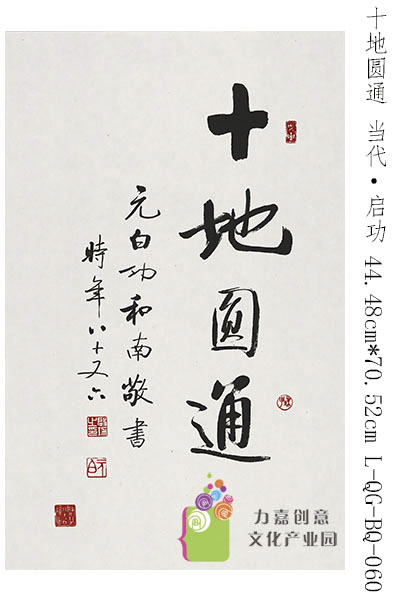 十地圆通 当代·启功 44.48cm*70.52cm L-QG-BQ-060
十地圓通
元白功和南敬書
時年八十又六
力嘉创意
文化产业园